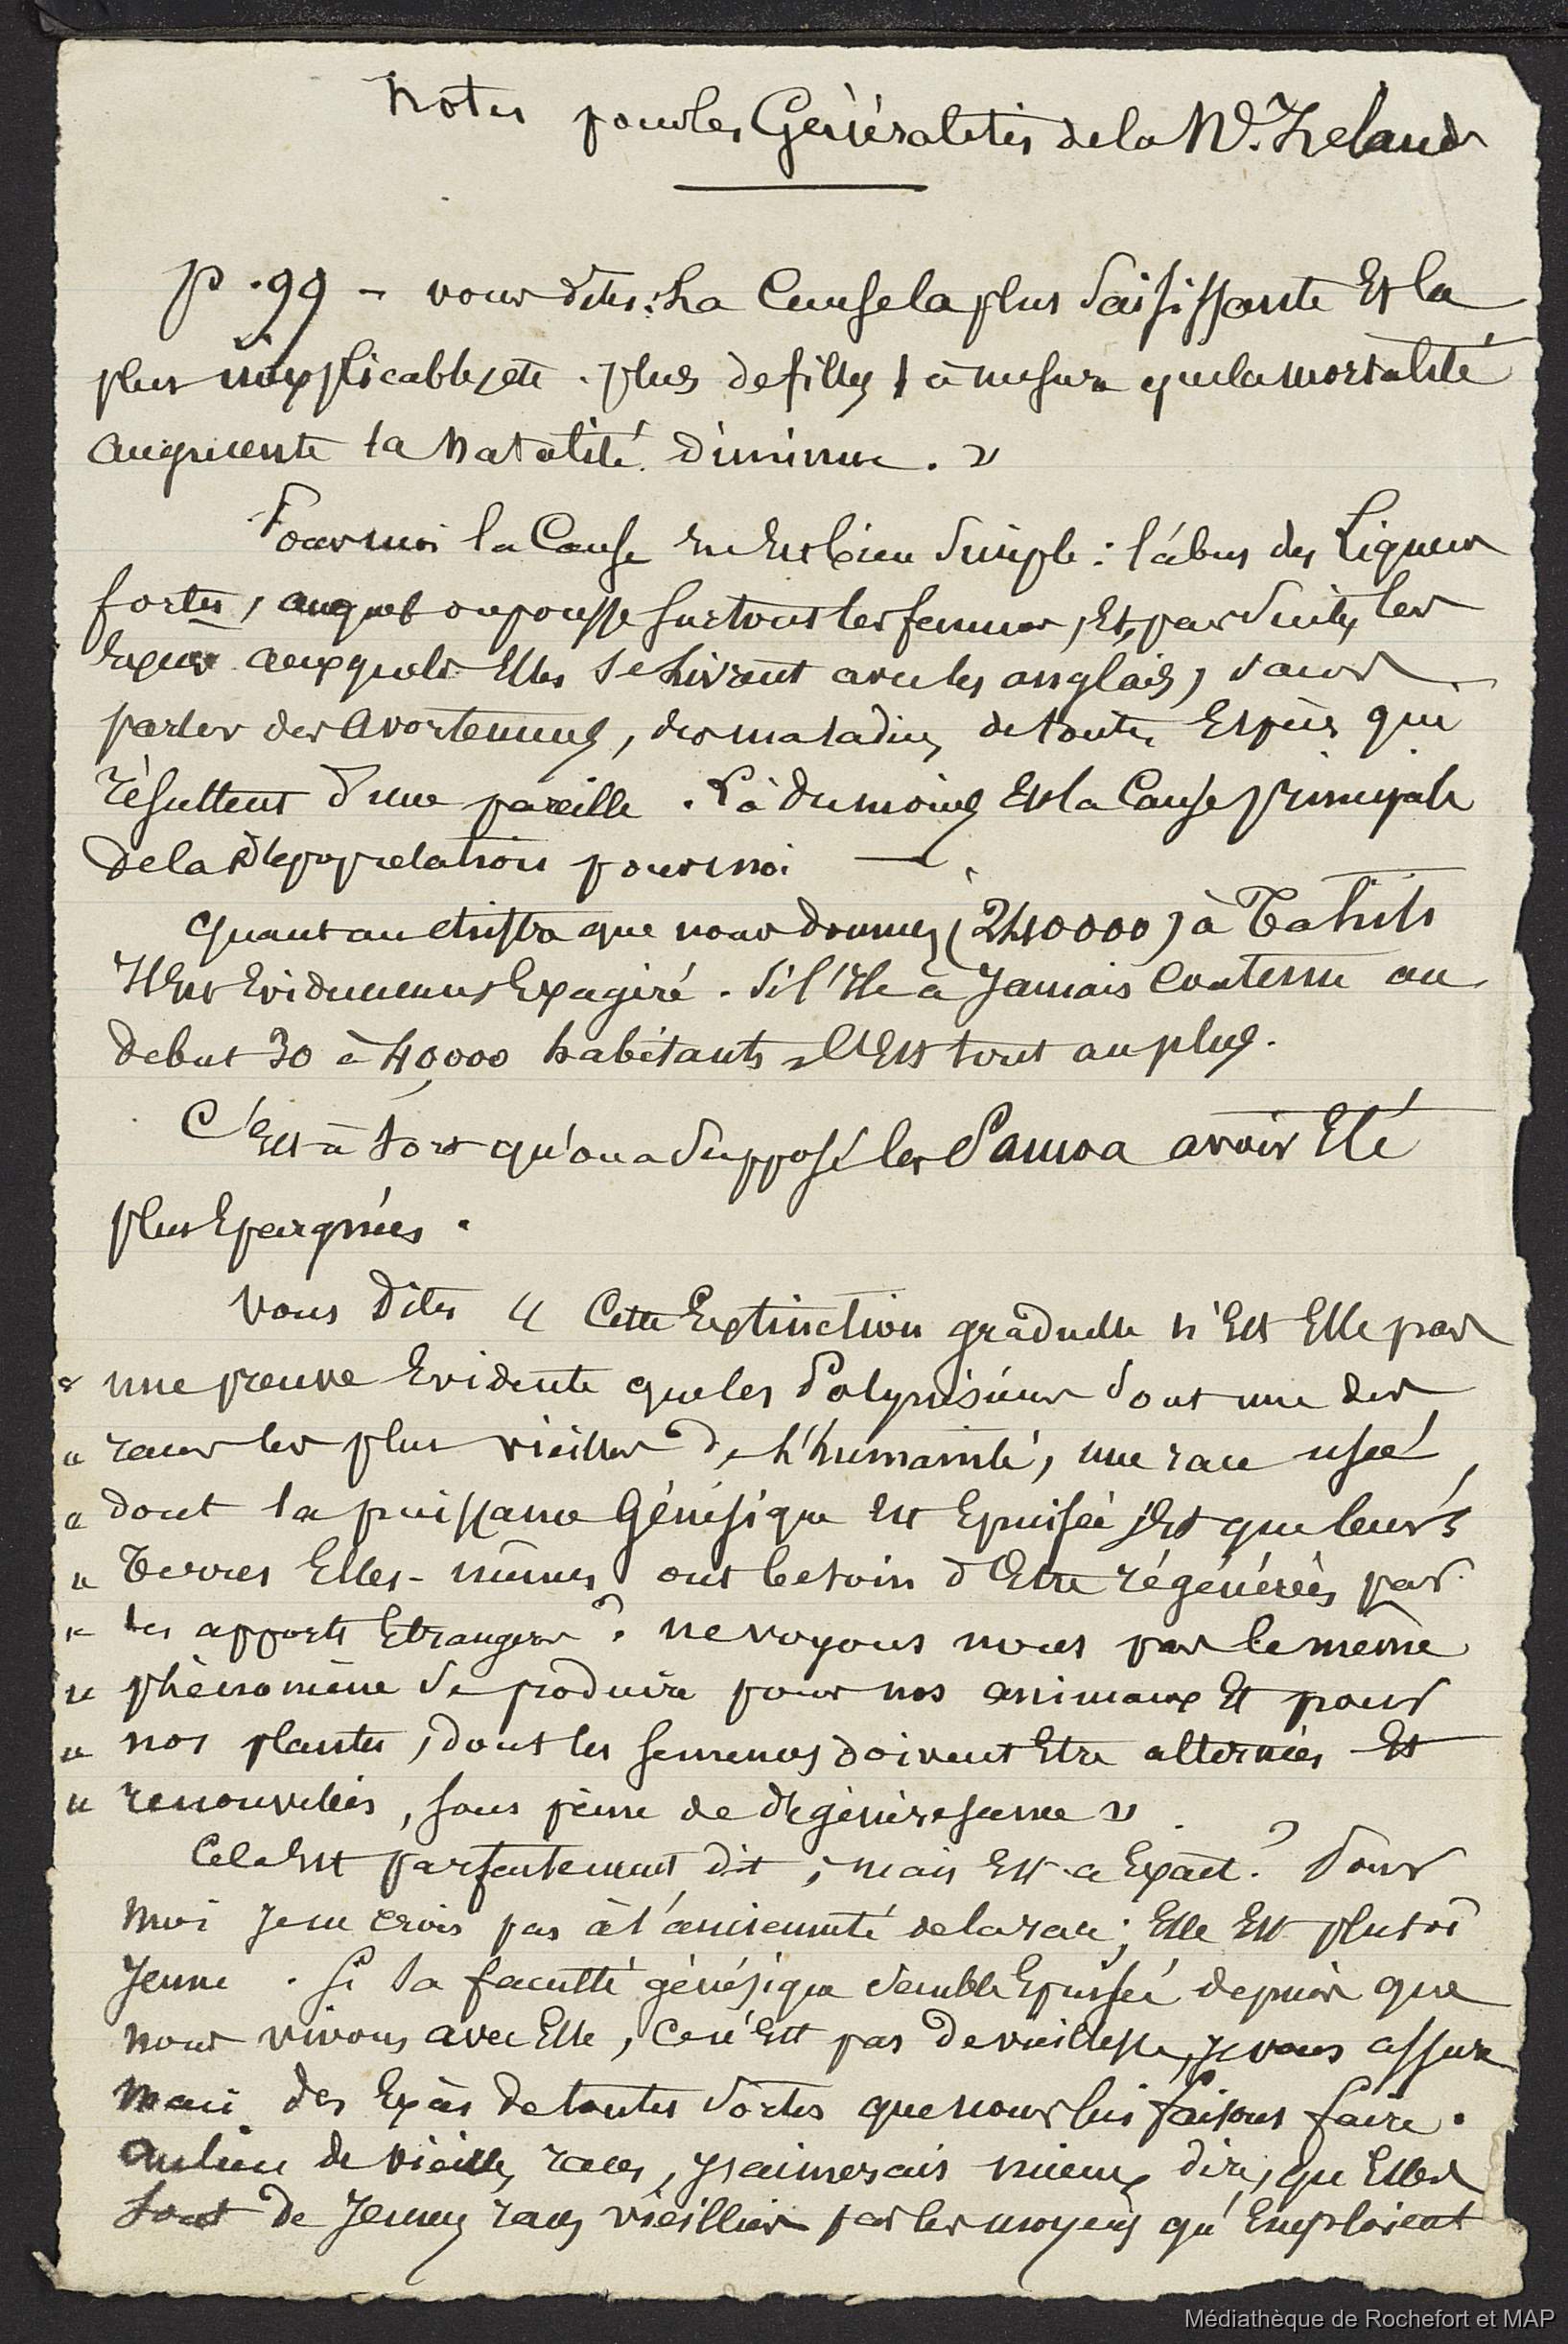 Notes pour les Généralités de la N. Zeland
p. 99 – vous dites : La Cause la plus Saisissante Et la
plus inexplicable, etc. plus de filles à mesure que la mortalité
augmente la Natalité diminue. »
Pour moi la Cause En Est bien Simple : l'abus des Liqueurs
fortes, auquel on pousse surtout les femmes, Et, par Suite, les
Excès auxquels Elles se Livrent avec les anglais, sans
parler des Avortements, des maladies de toutes Espèces qui
résultent d'une pareille . Là du moins Est la Cause principale
de la dépopulation pour moi —
Quant au chiffre que vous donnez (240000) à Tahiti
Il Est Evidemment Exagéré. Si l'Ile a Jamais Contenu au
debut 30 à 40,000 habitants C'Est tout au plus.
C'Est à tort qu'on a Supposé les Samoa avoir Eté
plus Epargnées.
Vous Dites « Cette Extinction graduelle n'Est Elle pas
« une preuve Evidente que les Polynésiens Sont une des
« races les plus vieilles de L'humanité, une race usée,
« dont la puissance Génésique Est Epuisée, Et que leurs
« Terres Elles-mêmes ont besoin d'Etre régénérées par
« des apports Etrangers ? ne voyons nous pas le même
« phénomène Se produire pour nos animaux Et pour
« nos plantes, dont les semences doivent Etre alternées Et
« renouvelées, sous peine de dégénérescence »
Cela Est parfaitement dit ; mais Est-ce Exact ? Pour
moi Je ne crois pas à l'ancienneté de la race ; Elle Est plutôt
Jeune . Si sa faculté génésique Semble Epuisée depuis que
nous vivons avec Elle, Ce n'Est pas de vieillesse, Je vous assure
mais des Excès de toutes Sortes que nous lui faisons faire.
Au lieu de vieilles races, J'aimerais mieux dire, qu'Elles
sont de Jeunes races vieillies par les moyens qu'Emploient
Médiathèque de Rochefort et MAP